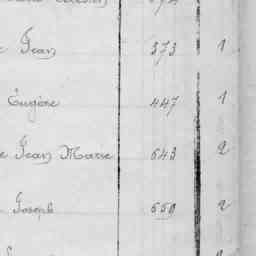 e Jean 373 1
Eugène 447 1
e Jean Marie 643 2
Joseph 659 2